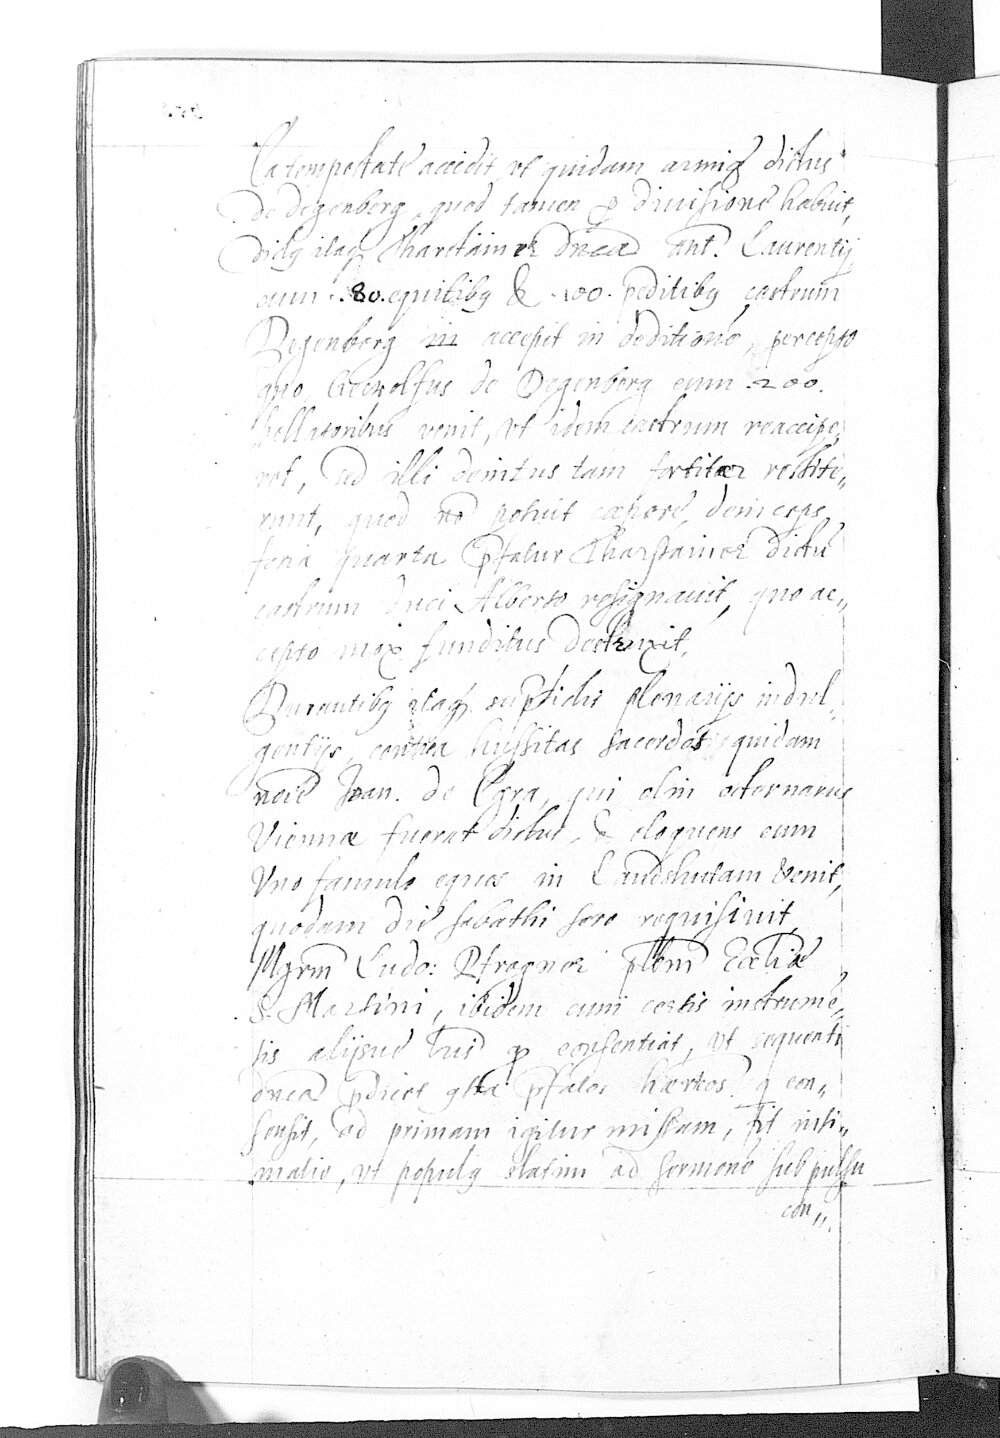 Ea tempestate accidit, vt quidam armig dictus
de Degenberg, quod tamen p diuisione habuit,
dictq itaq Tharstainer dnca ant. Laurentij
cum .80. equitibq & .100. peditibq castrum
Degenberg in accepit in deditione, percepto
quo Gewolfus de Degenberg cum .200.
bellatoribus venit, vt idem castrum reaccipe,,
ret, sed illi deintus tam fortiter restite,,
runt, quod no potuit capere, deinceps
feria quarta pfatur Tharstainer dictu
castrum duci Alberto resignauit, quo ac,,
cepto mox funditus destruxit.
Durantibq itaq plenarijs indul,,
gentijs, contra hussitas sacerdos quidam
noie Joan. de Egra, qui olim octernarius
Viennæ fuerat dictus, & eloquens cum
Vno famulo eques in Landshutam venit,
quodam die sabathi sero requisiuit
Mgrm Ludo: plbm Ecclie
S. Martini, ibidem cum certis instrume,,
tis alijsue lris p consentiat, vt sequenti
dnca pdicet gtra pfatos hæreos. q con,,
sensit, ad primam igitur missam, fit inti,,
matio, vt populq statim ad sermone sub pulsu
con,,.